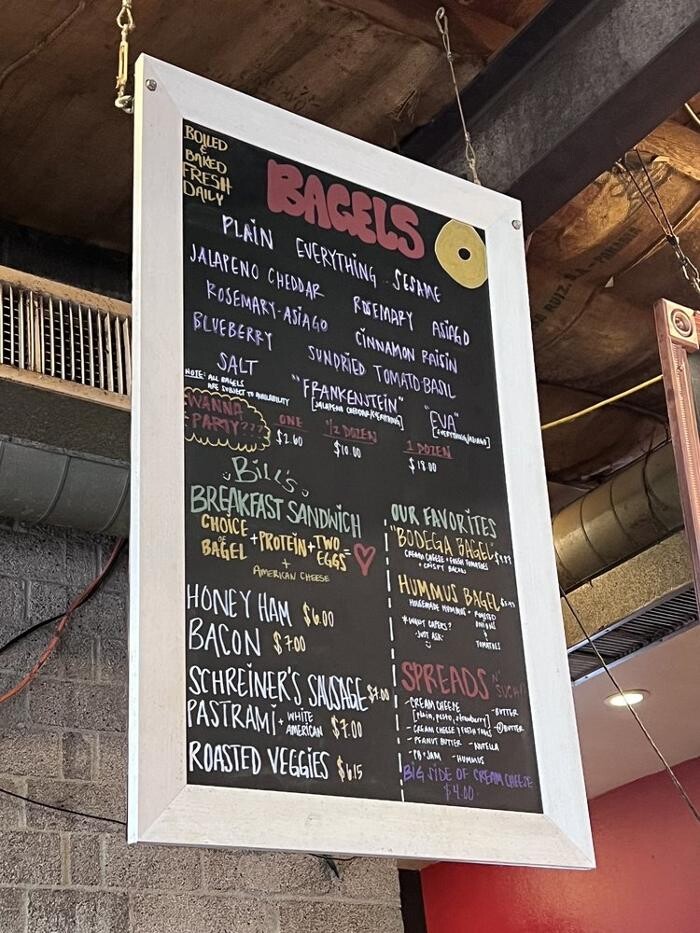 BOILED
&
BAKED
FRESH
DAILY
BAGELS
PLAIN EVERYTHING SESAME
JALAPENO CHEDDAR ROSEMARY ASIAGO
ROSEMARY-ASIAGO CINNAMON RAISIN
BLUEBERRY SUNDRIED TOMATO BASIL
SALT "FRANKENSTEIN" "EVA"
[JALAPENO CHEDDAR/EVERYTHING] [EVERYTHING/ASIAGO]
NOTE: ALL BAGELS
ARE SUBJECT TO AVAILABILITY
WANNA
PARTY???
ONE 1/2 DOZEN 1 DOZEN
$2.60 $10.00 $18.00
Bill's
BREAKFAST SANDWICH
CHOICE
OF
BAGEL + PROTEIN + TWO
EGGS =
+
AMERICAN CHEESE
HONEY HAM $6.00
BACON $7.00
SCHREINER'S SAUSAGE $7.00
PASTRAMI + WHITE
AMERICAN $7.00
ROASTED VEGGIES $6.15
OUR FAVORITES
"BODEGA BAGEL"
CREAM CHEESE + FRESH TOMATOES
+ CRISPY BACON
HUMMUS BAGEL
HOUSEMADE HUMMUS + ROASTED
ONIONS
&
TOMATOES
*WANT CAPERS?
JUST ASK!
SPREADS N'
SUCH!
-CREAM CHEESE
[plain, pesto, strawberry] -BUTTER
-CREAM CHEESE & FRESH TOMS
-PEANUT BUTTER -NUTELLA
-PB+JAM -HUMMUS
BIG SIDE OF CREAM CHEESE
$4.00